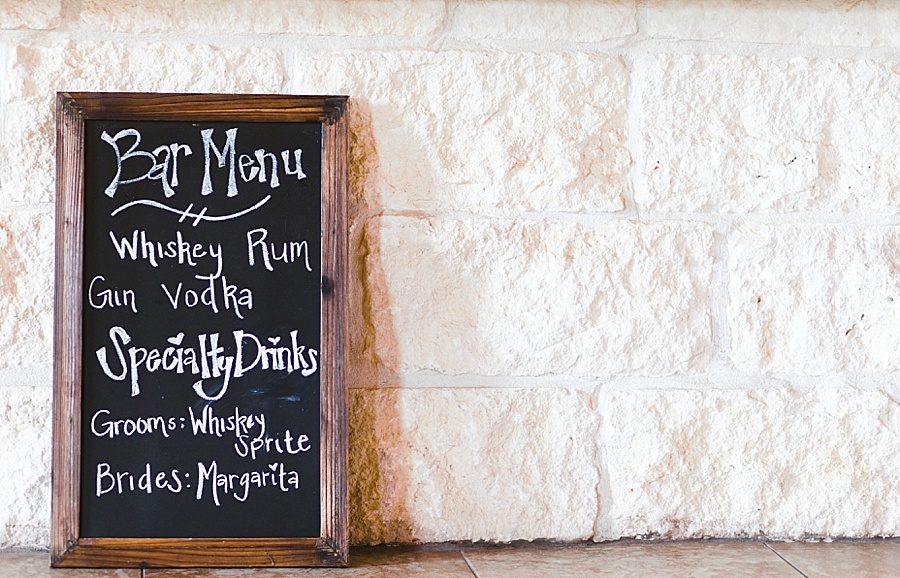 Bar Menu
Whiskey Rum
Gin Vodka
Specialty Drinks
Grooms: Whiskey
Sprite
Brides: Margarita